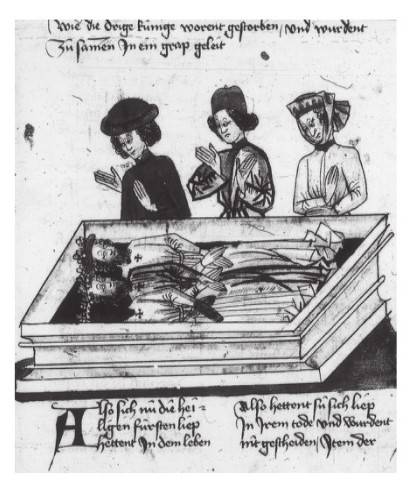 Wie die drige künige worent gestorben / vnd wurdent
Zů samen In ein grap geleit
Also sich nů die hei⸗
ligen fürsten liep
hettent In dem leben
Also hettent sü sich liep
In Irem tode vnd wurdent
nit gescheiden / Item der